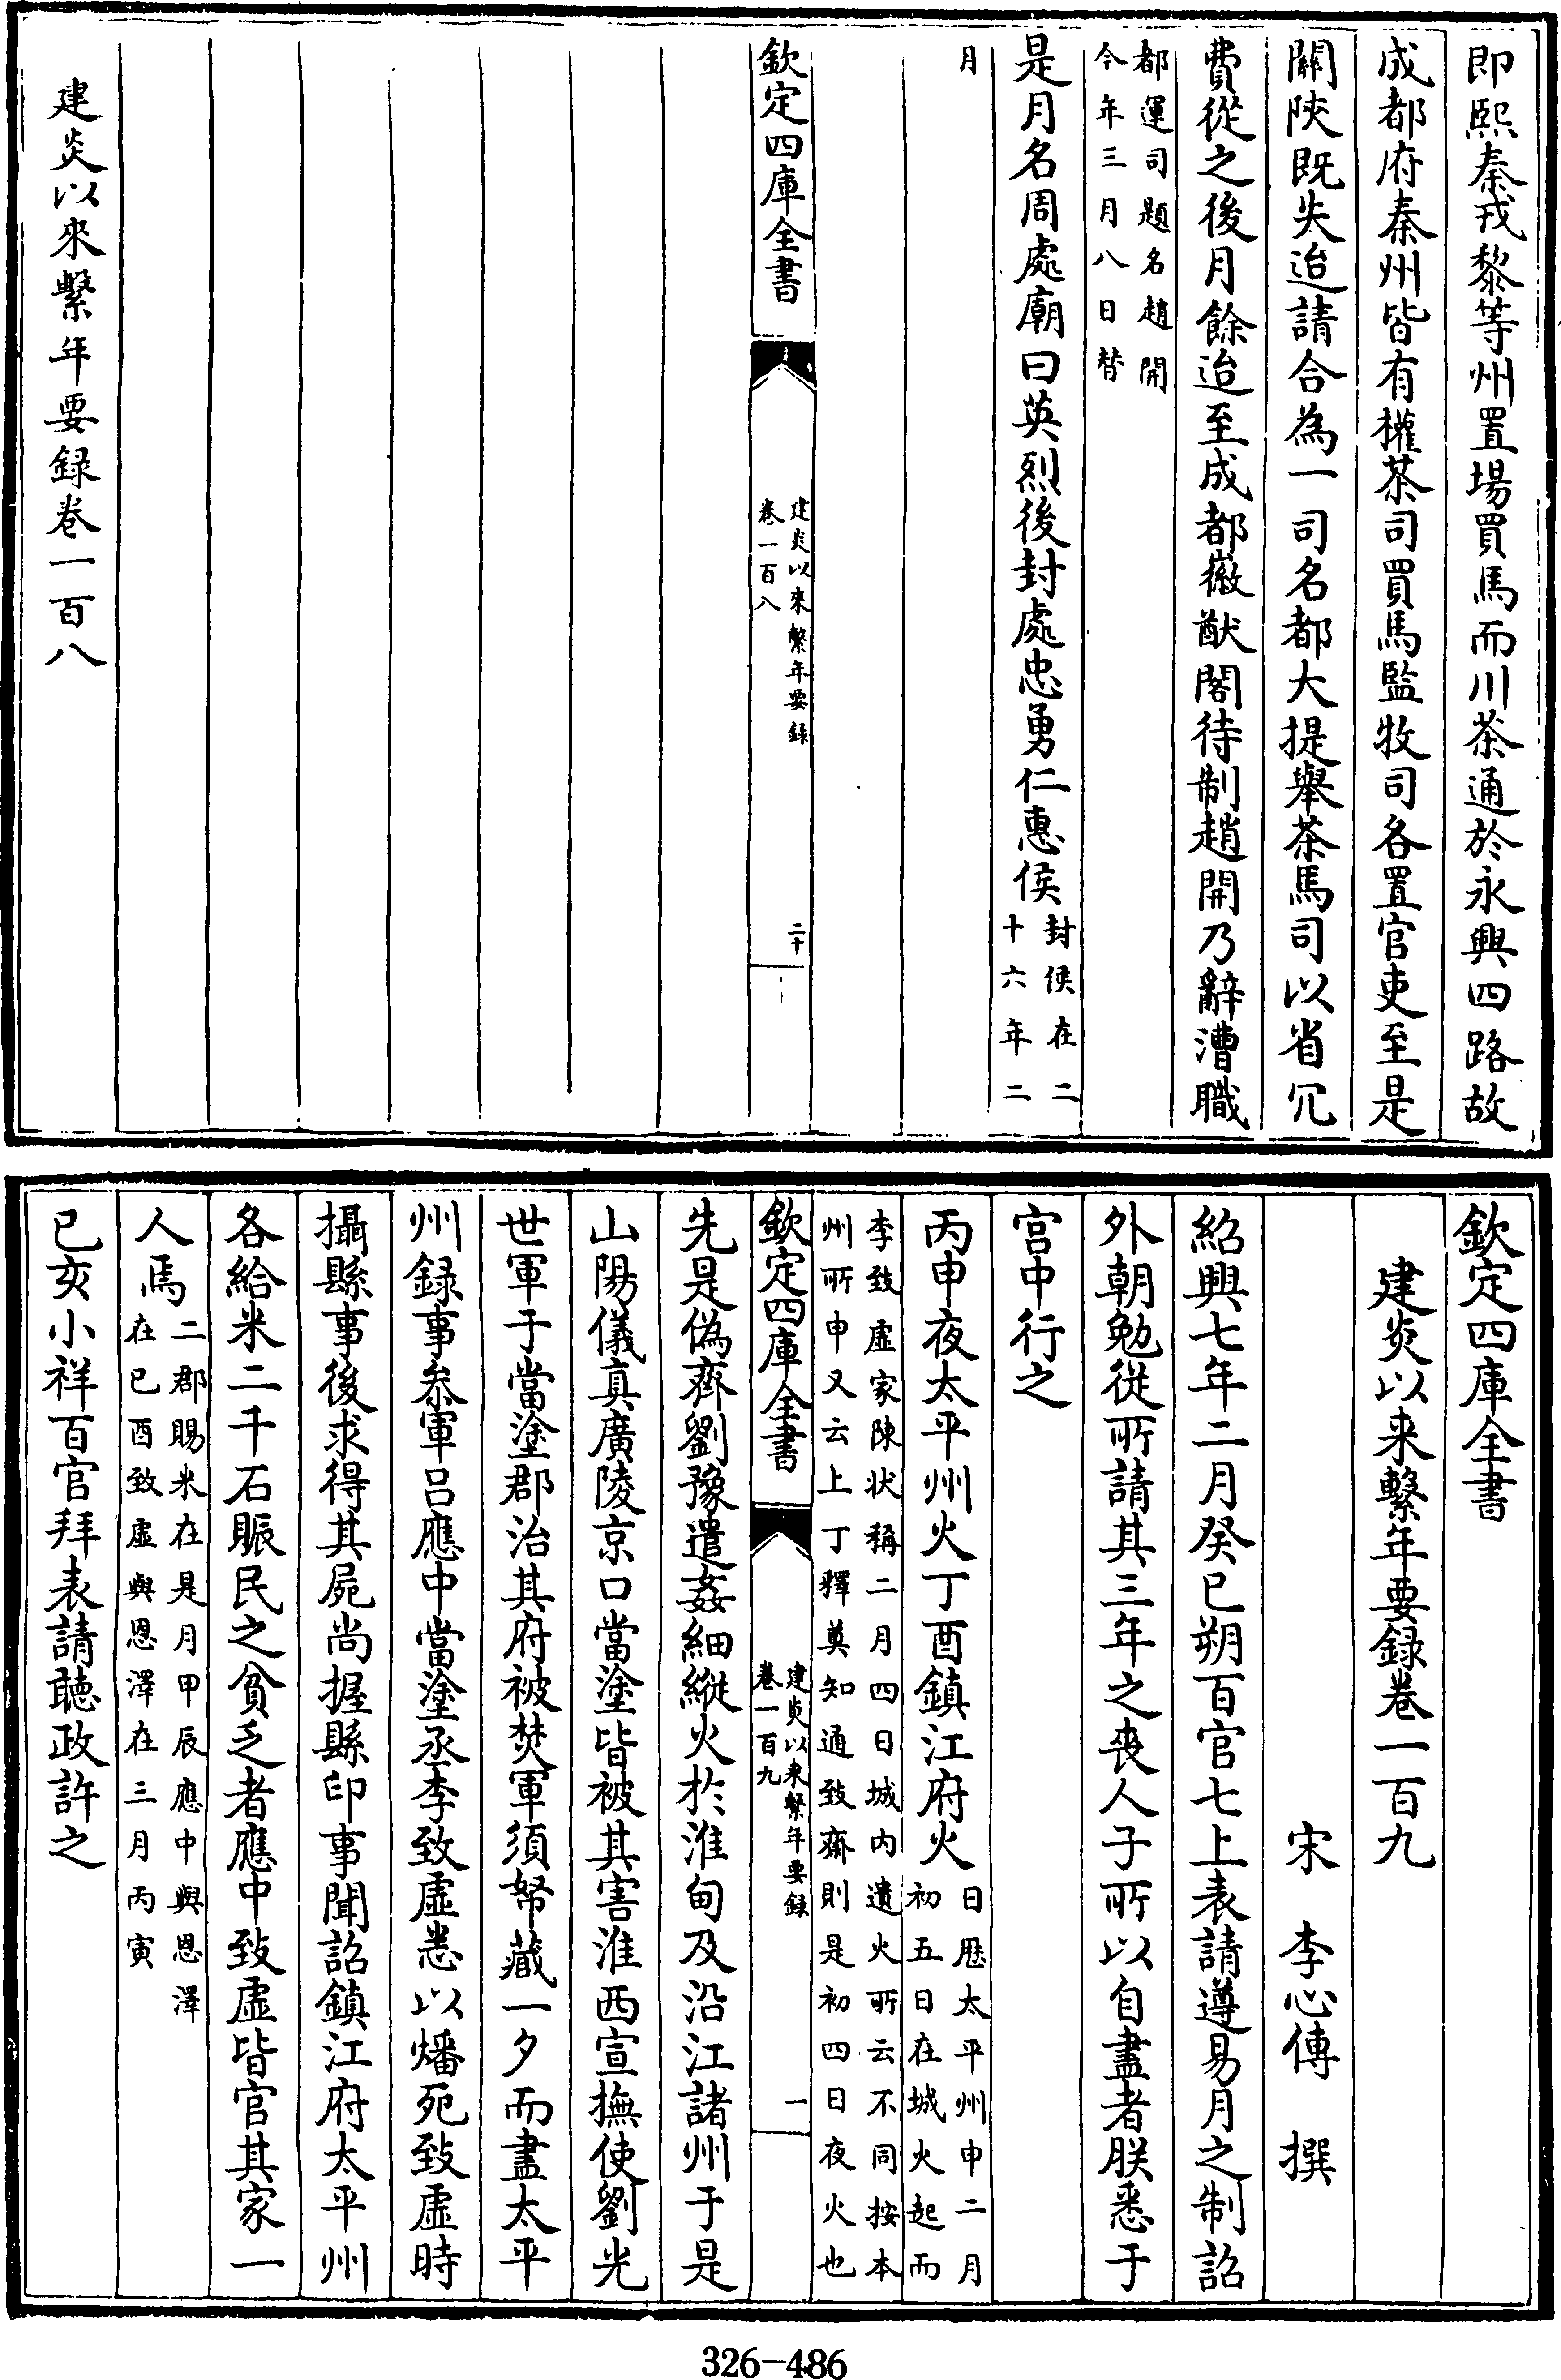 即熙秦戎黎等州置場買馬而川茶通於永興四路故
成都府秦州皆有榷茶司買馬監牧司各置官吏至是
關陜既失迨請合為一司名都大提舉茶馬司以省冗
費從之後月餘迨至成都徽猷閣待制趙開乃辭漕職
都運司題名趙開
今年三月八日替
是月名周處廟曰英烈後封處忠勇仁惠侯
封侯在二
十六年二
月
欽定四庫全書
建炎以來繫年要録
卷一百八
二十
建炎以來繫年要録卷一百八
欽定四庫全書
建炎以来繫年要録卷一百九
宋 李心傳 撰
紹興七年二月癸巳朔百官七上表請遵易月之制詔
外朝勉從所請其三年之喪人子所以自盡者朕悉于
宫中行之
丙申夜太平州火丁酉鎮江府火
日厯太平州申二月
初五日在城火起而
李致虚家陳状稱二月四日城内遺火所云不同按本
州所申又云上丁釋奠知通致齋則是初四日夜火也
欽定四庫全書
建炎以来繫年要録
卷一百九
一
先是偽齊劉豫遣姦細縱火於淮甸及沿江諸州于是
山陽儀真廣陵京口當塗皆被其害淮西宣撫使劉光
世軍于當塗郡治其府被焚軍須帑藏一夕而盡太平
州録事叅軍吕應中當塗丞李致虚悉以燔死致虚時
攝縣事後求得其屍尚握縣印事聞詔鎮江府太平州
各給米二千石賑民之貧乏者應中致虚皆官其家一
人焉
二郡賜米在是月甲辰應中與恩澤
在已酉致虚與恩澤在三月丙寅
已亥小祥百官拜表請聴政許之
326-486